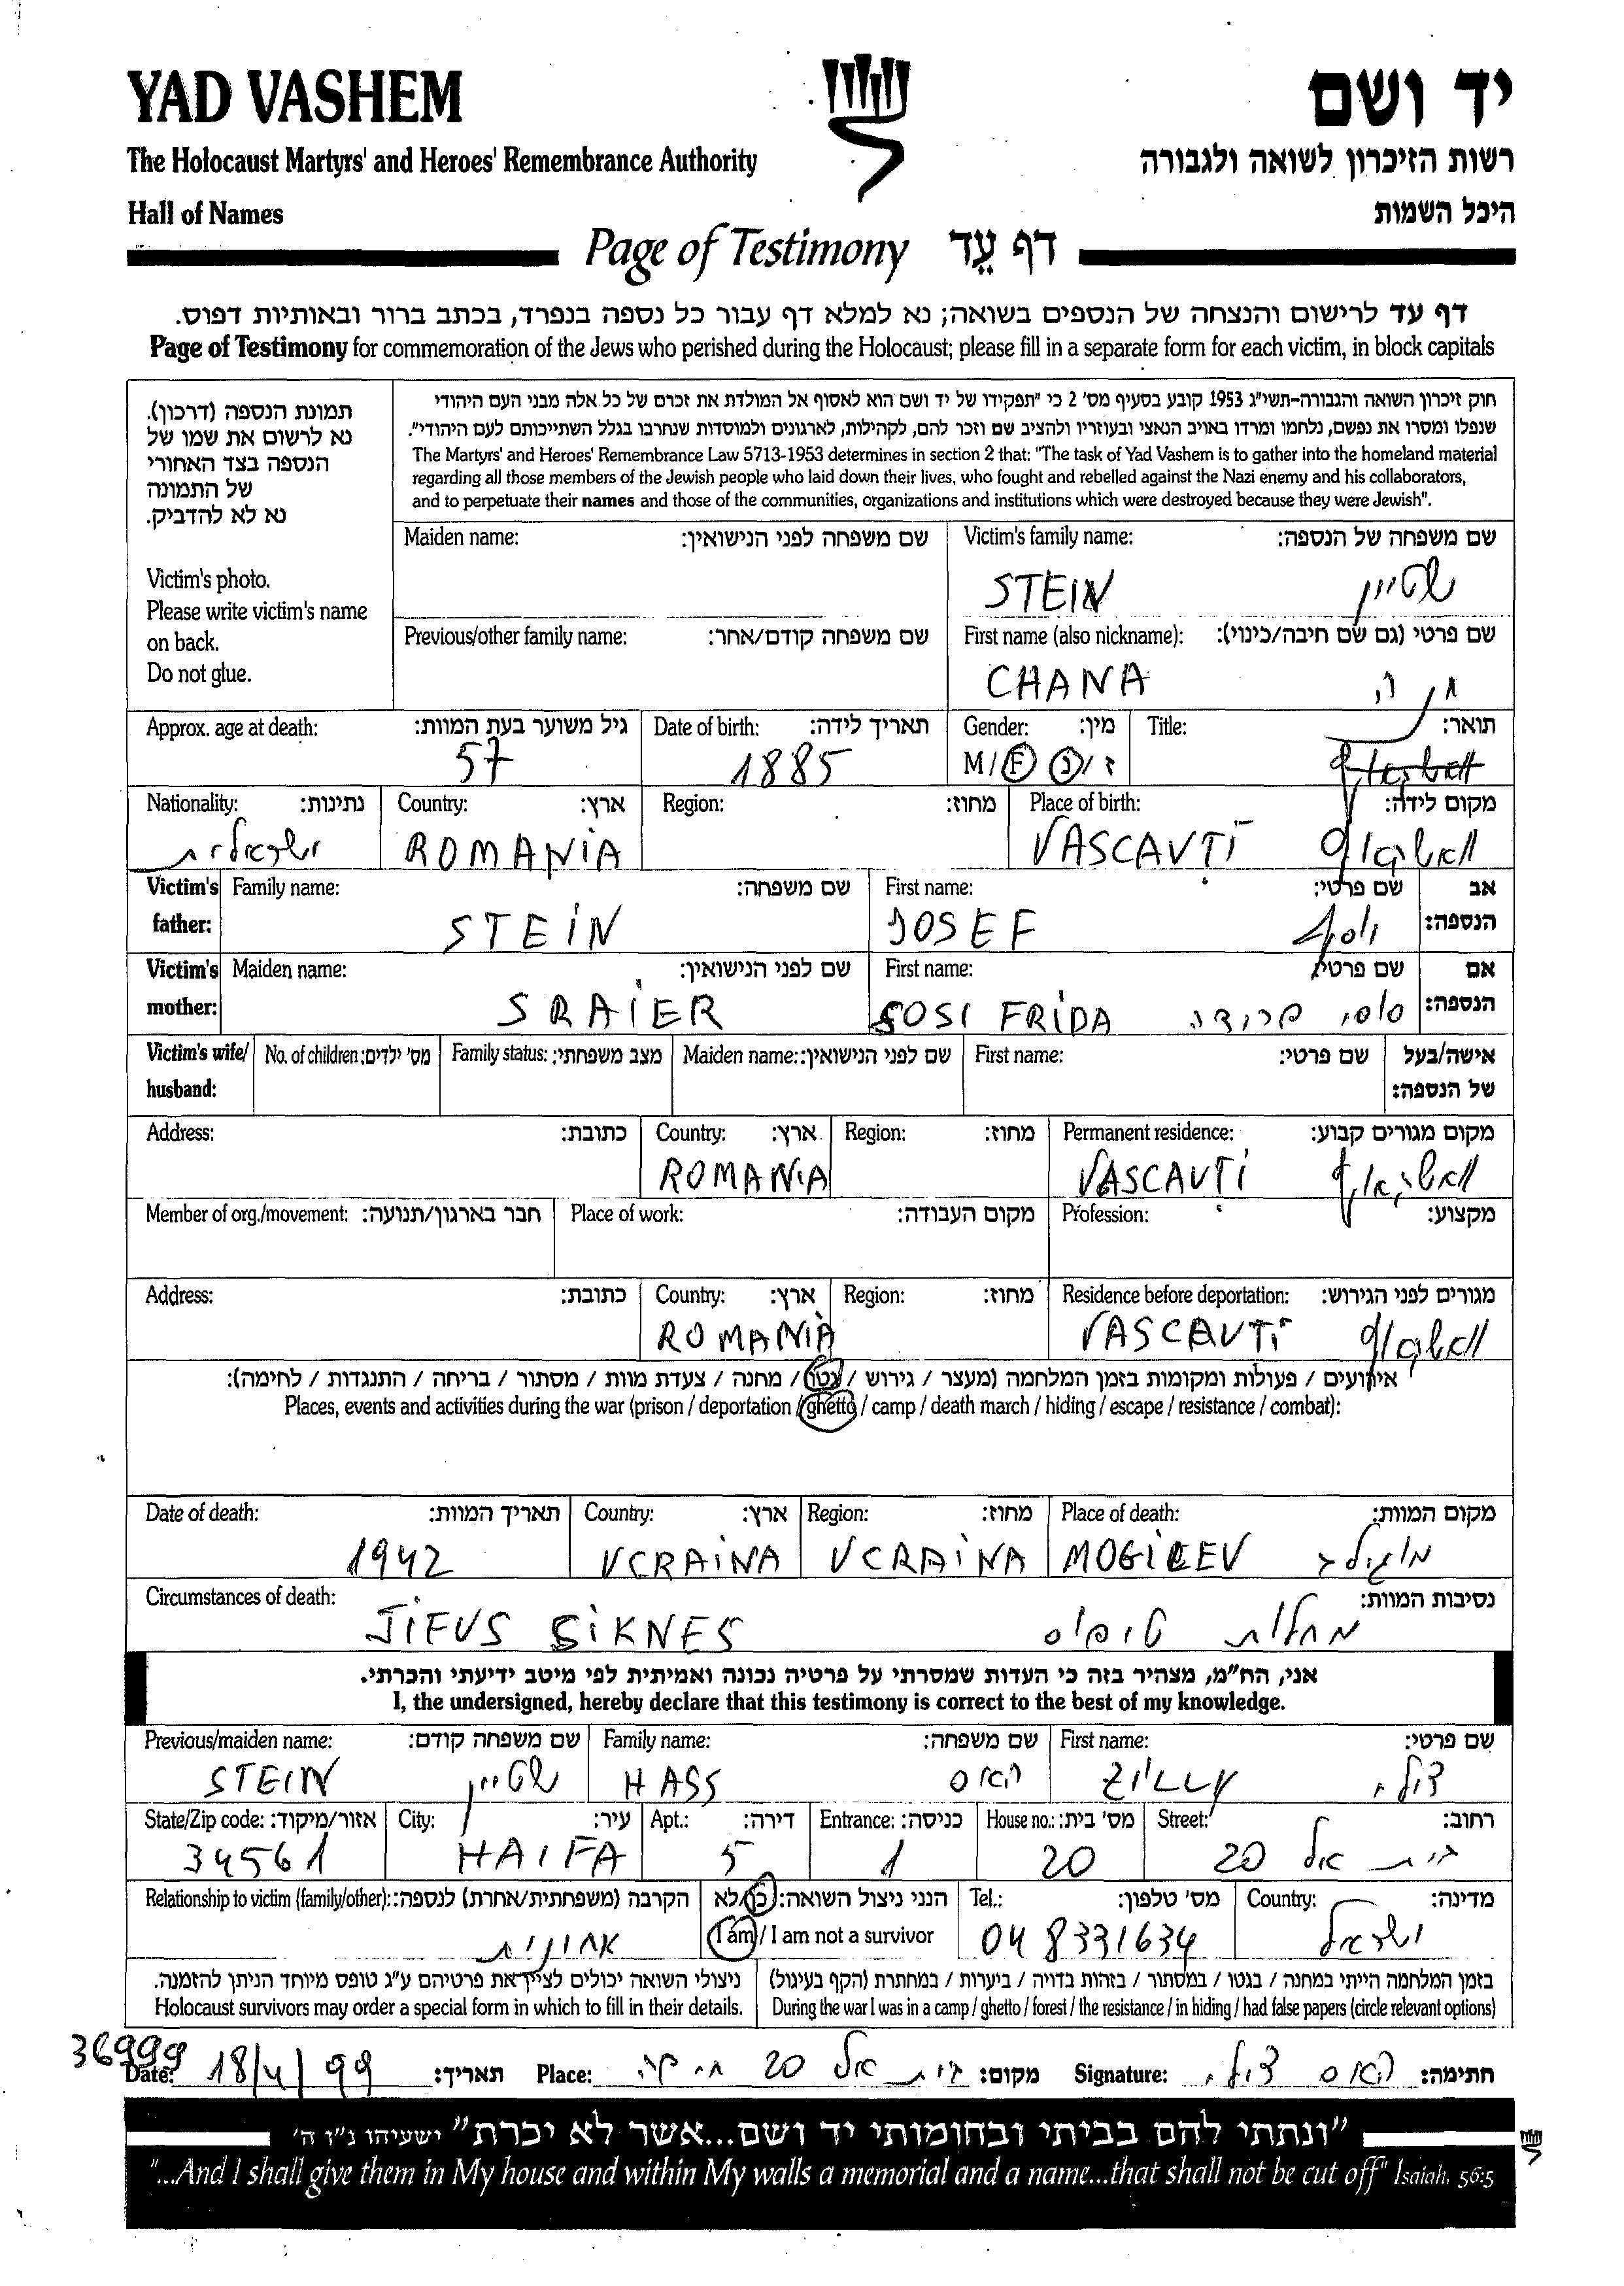 YAD VASHEM יד ושם
The Holocaust Martyrs' and Heroes' Remembrance Authority רשות הזיכרון לשואה ולגבורה
Hall of Names היכל השמות
Page of Testimony דף עֵד
דף עד לרישום והנצחה של הנספים בשואה; נא למלא דף עבור כל נספה בנפרד, בכתב ברור ובאותיות דפוס.
Page of Testimony for commemoration of the Jews who perished during the Holocaust; please fill in a separate form for each victim, in block capitals
תמונת הנספה (דרכון).
נא לרשום את שמו של
הנספה בצד האחורי
של התמונה
נא לא להדביק.
Victim's photo.
Please write victim's name
on back.
Do not glue.
חוק זיכרון השואה והגבורה-תשי"ג 1953 קובע בסעיף מס' 2 כי "תפקידו של יד ושם הוא לאסוף אל המולדת את זכרם של כל אלה מבני העם היהודי
שנפלו ומסרו את נפשם, נלחמו ומרדו באויב הנאצי ובעוזריו ולהציב שם וזכר להם, לקהילות, לארגונים ולמוסדות שנחרבו בגלל השתייכותם לעם היהודי".
The Martyrs' and Heroes' Remembrance Law 5713-1953 determines in section 2 that: "The task of Yad Vashem is to gather into the homeland material
regarding all those members of the Jewish people who laid down their lives, who fought and rebelled against the Nazi enemy and his collaborators,
and to perpetuate their names and those of the communities, organizations and institutions which were destroyed because they were Jewish".
Maiden name: שם משפחה לפני הנישואין: Victim's family name: שם משפחה של הנספה:
STEIN שטיין
Previous/other family name: שם משפחה קודם/אחר: First name (also nickname): שם פרטי (גם שם חיבה/כינוי):
CHANA חנה
Approx. age at death: גיל משוער בעת המוות: Date of birth: תאריך לידה: Gender: מין: Title: תואר:
57 1885 M/F ז/נ
Nationality: נתינות: Country: ארץ: Region: מחוז: Place of birth: מקום לידה:
ישראלית ROMANIA VASCAUTI
Victim's father: Family name: שם משפחה: First name: שם פרטי: אב הנספה:
STEIN JOSEF יוסף
Victim's mother: Maiden name: שם לפני הנישואין: First name: שם פרטי: אם הנספה:
SRAIER SOSI FRIDA סוסי פרידה
Victim's wife/ husband: No. of children: מס' ילדים: Family status: מצב משפחתי: Maiden name: שם לפני הנישואין: First name: שם פרטי: אישה/בעל של הנספה:
Address: כתובת: Country: ארץ: Region: מחוז: Permanent residence: מקום מגורים קבוע:
ROMANIA VASCAUTI
Member of org./movement: חבר בארגון/תנועה: Place of work: מקום העבודה: Profession: מקצוע:
Address: כתובת: Country: ארץ: Region: מחוז: Residence before deportation: מגורים לפני הגירוש:
ROMANIA VASCAUTI
אירועים / פעולות ומקומות בזמן המלחמה (מעצר / גירוש / גטו / מחנה / צעדת מוות / מסתור / בריחה / התנגדות / לחימה):
Places, events and activities during the war (prison / deportation / ghetto / camp / death march / hiding / escape / resistance / combat):
Date of death: תאריך המוות: Country: ארץ: Region: מחוז: Place of death: מקום המוות:
1942 UCRAINA UCRAINA MOGILEV מוגילב
Circumstances of death: נסיבות המוות:
JIFUS SIKNES מחלת טיפוס
אני, הח"מ, מצהיר בזה כי העדות שמסרתי על פרטיה נכונה ואמיתית לפי מיטב ידיעתי והכרתי.
I, the undersigned, hereby declare that this testimony is correct to the best of my knowledge.
Previous/maiden name: שם משפחה קודם: Family name: שם משפחה: First name: שם פרטי:
STEIN שטיין HASS האס ZILLY צילי
State/Zip code: אזור/מיקוד: City: עיר: Apt.: דירה: Entrance: כניסה: House no.: מס' בית: Street: רחוב:
34561 HAIFA 5 1 20 בית אל 20
Relationship to victim (family/other): הקרבה (משפחתית/אחרת) לנספה: הנני ניצול השואה: כן/לא Tel.: מס' טלפון: Country: מדינה:
אחינית I am / I am not a survivor 04 8331634 ישראל
ניצולי השואה יכולים לציין את פרטיהם ע"ג טופס מיוחד הניתן להזמנה. בזמן המלחמה הייתי במחנה / בגטו / במסתור / בזהות בדויה / ביערות / במחתרת (הקף בעיגול)
Holocaust survivors may order a special form in which to fill in their details. During the war I was in a camp / ghetto / forest / the resistance / in hiding / had false papers (circle relevant options)
36999
Date: 18/4/99 תאריך: Place: בית אל 20 חיפה מקום: Signature: האס צילי חתימה:
"ונתתי להם בביתי ובחומותי יד ושם...אשר לא יכרת" ישעיהו נ"ו ה'
"...And I shall give them in My house and within My walls a memorial and a name...that shall not be cut off" Isaiah, 56:5